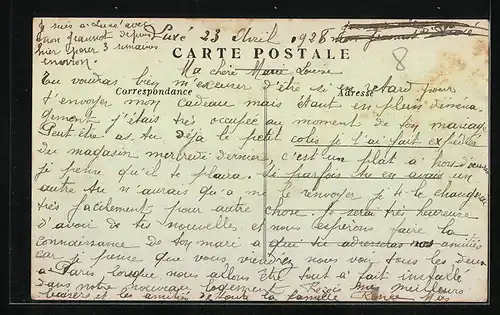 Je suis à Luxé avec
mon Jeannot depuis
hier pour 3 semaines
environ
Luxé 23 Avril 1928
CARTE POSTALE
8
Ma chère Marie Louise
Correspondance
Adresse
Tu voudras bien m'excuser d'être si en retard pour
t'envoyer mon cadeau mais étant en plein déména-
gement j'étais très occupée au moment de ton mariage
Peut être as-tu déjà le petit colis je l'ai fait expédier
du magasin mercredi dernier, c'est un plat à hors d'œuvre
je pense qu'il te plaira. Si parfois tu en avais un
autre tu n'aurais qu'à me le renvoyer je te le changerai
très facilement pour autre chose. Je serai très heureuse
d'avoir de tes nouvelles et nous espérons faire la
connaissance de ton mari à qui tu adresseras nos amitiés
car je pense que vous viendrez nous voir tous les deux
à Paris, lorsque nous allons être tout à fait installé
dans notre nouveau logement. Reçois mes meilleurs
baisers et les amitiés de toute la famille Renée